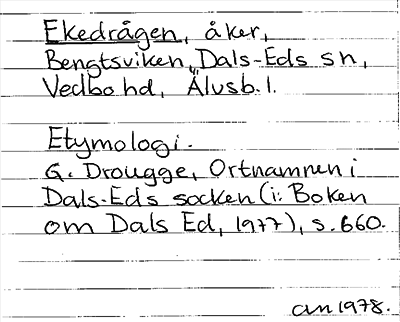 Ekedrågen, åker,
Bengtsviken, Dals-Eds sn,
Vedbo hd, Älvsb. l.
Etymologi.
G. Drougge, Ortnamnen i
Dals-Eds socken (i: Boken
om Dals Ed, 1977), s. 660.
am 1978.